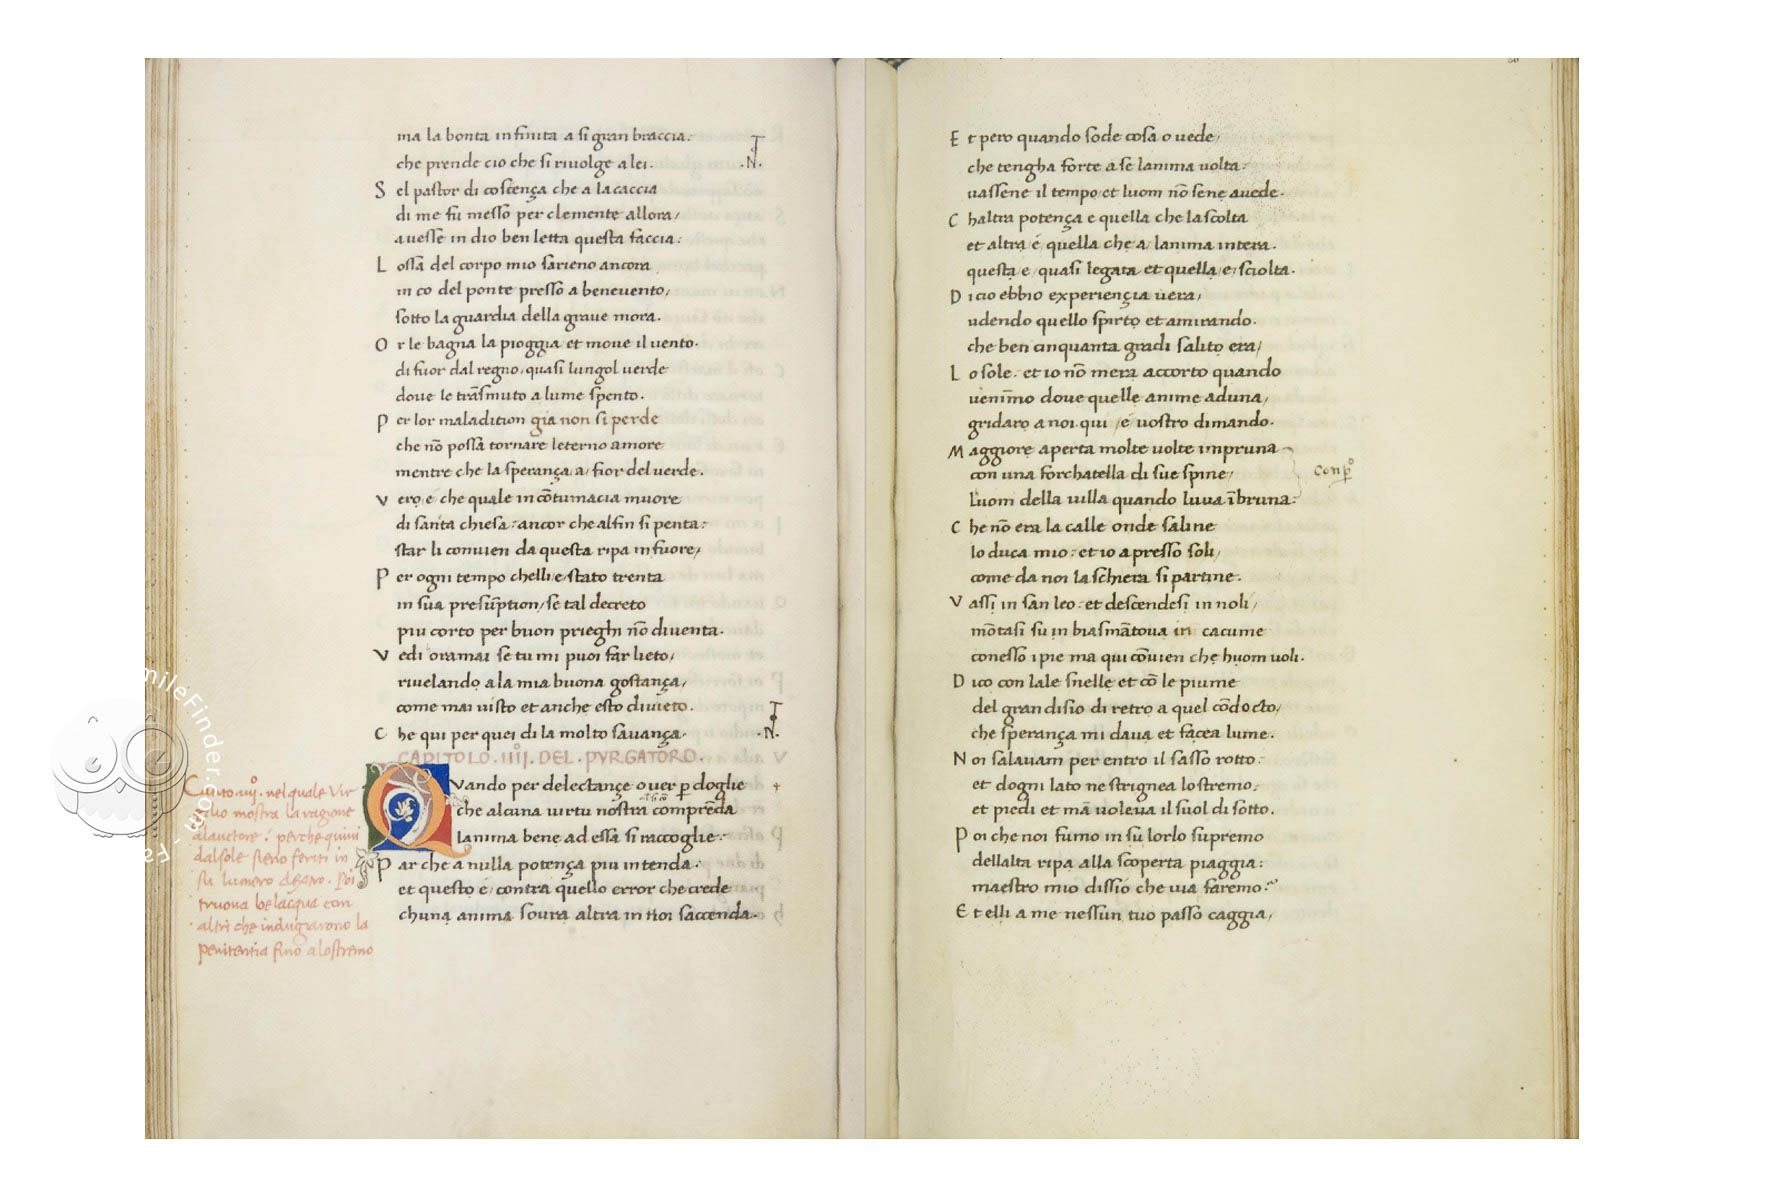 ma la bonta infinita a si gran braccia.
che prende cio che si riuolge a lei.
.N.
S el pastor di coscença che a la caccia
di me fu messo per clemente allora/
auesse in dio ben letta questa faccia:
L ossa del corpo mio sarieno ancora
in co del ponte presso a beneuento/
sotto la guardia della graue mora.
O r le bagna la pioggia et moue il uento.
di fuor dal regno/quasi lungol uerde
doue le trāsmuto a lume spento.
P er lor maladition gia non si perde
che nō possa tornare leterno amore
mentre che la sperança a/ fior del uerde.
V ero e che quale in cōtumacia muore
di santa chiesa: ancor che alfin si penta:
star li conuien da questa ripa in fuore/
P er ogni tempo chelli e/stato trenta
in sua presūption/se tal decreto
piu corto per buon prieghi nō diuenta.
V edi oramai se tu mi puoi far lieto/
riuelando a la mia buona gostança/
come mai uisto et anche esto diuieto.
C he qui per quei di la molto sauança.
.N.
CAPITOLO .IIIJ. DEL .PVRGATORO.
QVando per delectançe o uer p doglie
che alcuna uirtu nostra comprēda
lanima bene ad essa si raccoglie:
P ar che a nulla potença piu intenda:
et questo e/ contra quello error che crede
chuna anima soura altra in noi saccenda.
Canto .iiij. nel quale Vir
gilio mostra la ragione
alauctore: perche quiui
dalsole sieno feriti in
su lumero Poi
truoua belacqua con
altri che indugiarono la
penitentia fino a lostremo
E t pero quando sode cosa o uede/
che tengha forte a se lanima uolta:
uassene il tempo et luom nō sene auede.
C haltra potença e quella che lascolta
et altra e quella che a/ lanima intera.
questa e/ quasi legata et quella e/ sciolta.
D i cio ebbio experiençia uera/
udendo quello spirto et amirando.
che ben cinquanta gradi salito era/
L o sole. et io nō mera accorto quando
uenimo doue quelle anime aduna/
gridaro a noi. qui /e uostro dimando.
M aggiore aperta molte uolte impruna
con una forchatella di sue spine/
Luom della uilla quando luua ībruna:
Conp
C he nō era la calle onde saline
lo duca mio: et io apresso soli/
come da noi la schiera si partine.
V assi in san leo: et descendesi in noli/
mōtasi su in biasmātoua in cacume
conesso i pie ma qui cōuien che huom uoli.
D ico con lale snelle et cō le piume
del gran disio di retro a quel cōdocto/
che sperança mi daua et facea lume.
N oi salauam per entro il sasso rotto:
et dogni lato ne strignea lo stremo:
et piedi et mā uoleua il suol di sotto.
P oi che noi fumo in su lorlo supremo
dellalta ripa alla scoperta piaggia:
maestro mio dissio che uia faremo:
E t elli a me nessun tuo passo caggia/